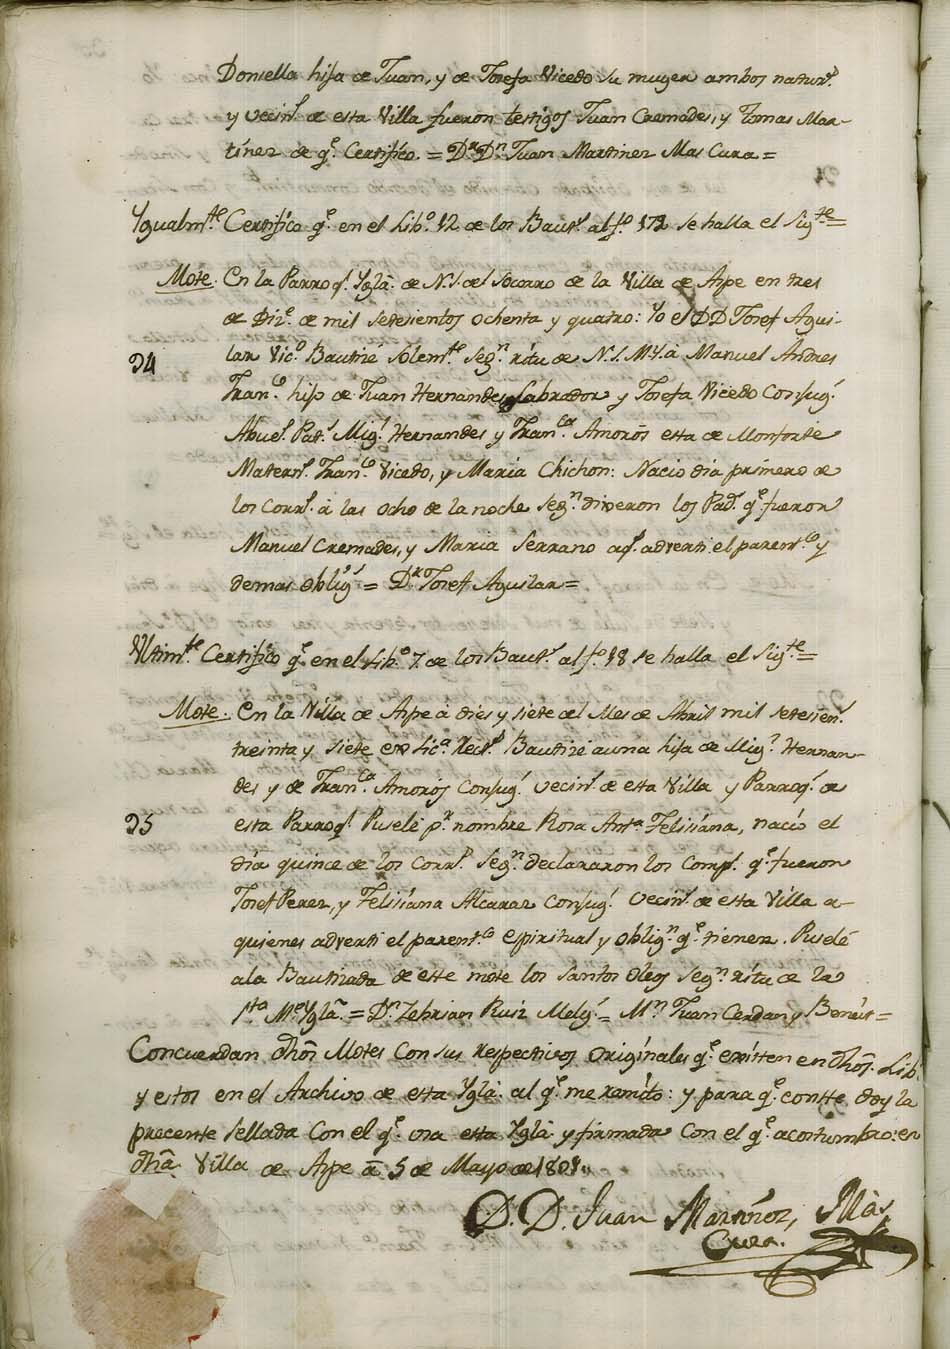 Donsella hija de Juan, y de Josefa Vicedo su muger ambos natur.s
y vecin.s de esta Villa fueron testigos Juan Cremades, y Tomas Mar-
tines de q.e Certifico. = D.r D.n Juan Martines Mas Cura =
Ygualm.te Certifico q.e en el Lib.o 12 de los Baut.s al f.o 172 se halla el Sig.te =
Mote. En la Parroq.l Yglâ. de N.S. del Socorro de la Villa de Aspe en tres
de Diz.e de mil setesientos ochenta y quatro: Yo el D D Josef Agui-
lar Vic.o Bautizé Solem.te Seg.n ritu de N.S.M.Y. à Manuel Andres
24
Fran.co hijo de Juan Hernandes Labrador y Josefa Vicedo Conjug.s
Abuel.s Pat.s Mig.l Hernandes y Fran.ca Amorós esta de Monforte
Matern.s Fran.co Vicedo, y Maria Chichon: Nacio dia primero de
los Corr.s à las ocho de la noche seg.n dixeron los Pad.s q.e fueron
Manuel Cremades, y Maria Serrano aq.s adverti el parent.co y
demas oblig.s = D.r Josef Aguilar =
Ultim.te Certifico q.e en el Lib.o 7. de los Baut.s al f.o 18 se halla el Sig.te =
Mote. En la Villa de Aspe à dies y siete del Mes de Abril mil setesien.s
treinta y siete el Lic.o Rect.r Bautizé a una hija de Mig.l Hernan-
des y de Fran.ca Amorós Conjug.s vecin.s de esta Villa y Parroq.s de
25
esta Parroq.l Puselé p.r nombre Rosa Ant.a Felisiana, nació el
dia quince de los Corr.s Seg.n declararon los Comp.s q.e fueron
Josef Perez, y Felisiana Alcaraz Conjug.s vecin.s de esta Villa a
quienes adverti el parent.co espiritual y oblig.n q.e tienen. Puselé
a la Bautizada de este mote los santos oleos Seg.n ritu de la
S.ta M.e Yglâ. = D.n Zebrian Ruiz Melg.s = M.n Juan Cerdan y Benéit =
Concuerdan dhôs Motes Con sus respectivos originales q.e existen en dhôs. Lib.s
y estos en el Archivo de esta Yglâ. al q.e me remito: y para q.e conste, doy la
precente sellada Con el q.e usa esta Yglâ y firmada Con el q.e acostumbro: en
dhâ. Villa de Aspe à 5 de Mayo de 1801.
D. D. Juan Martinez, Màs
Cura.